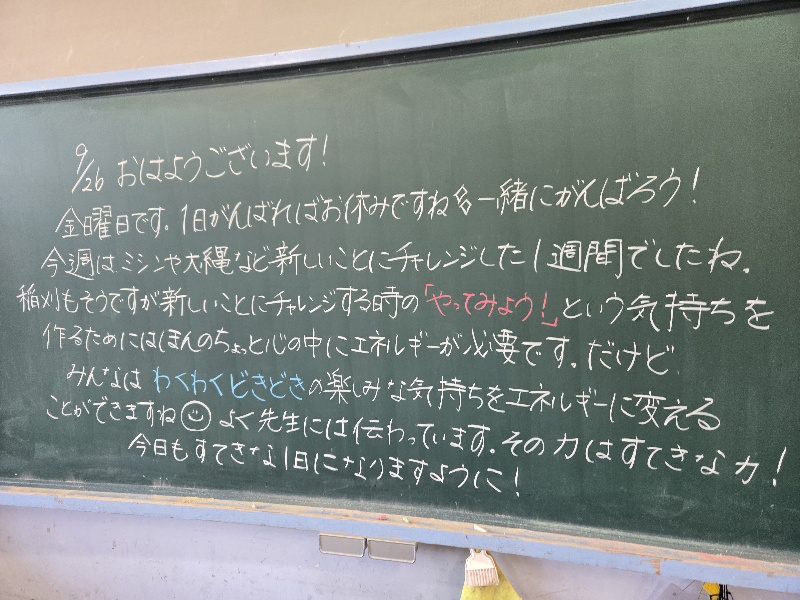 9/26 おはようございます!
金曜日です。1日がんばればお休みですね 一緒にがんばろう!
今週は、ミシンや大縄など新しいことにチャレンジした1週間でしたね。
稲刈もそうですが新しいことにチャレンジする時の「やってみよう!」という気持ちを
作るためにはほんのちょっと心の中にエネルギーが必要です。だけど
みんなは わくわくどきどきの楽しみな気持ちをエネルギーに変える
ことができますね☺ よく先生には伝わっています。その力はすてきな力!
今日もすてきな1日になりますように!